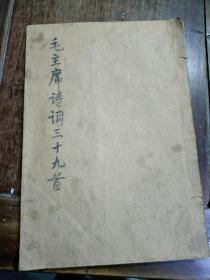 毛主席诗词三十九首